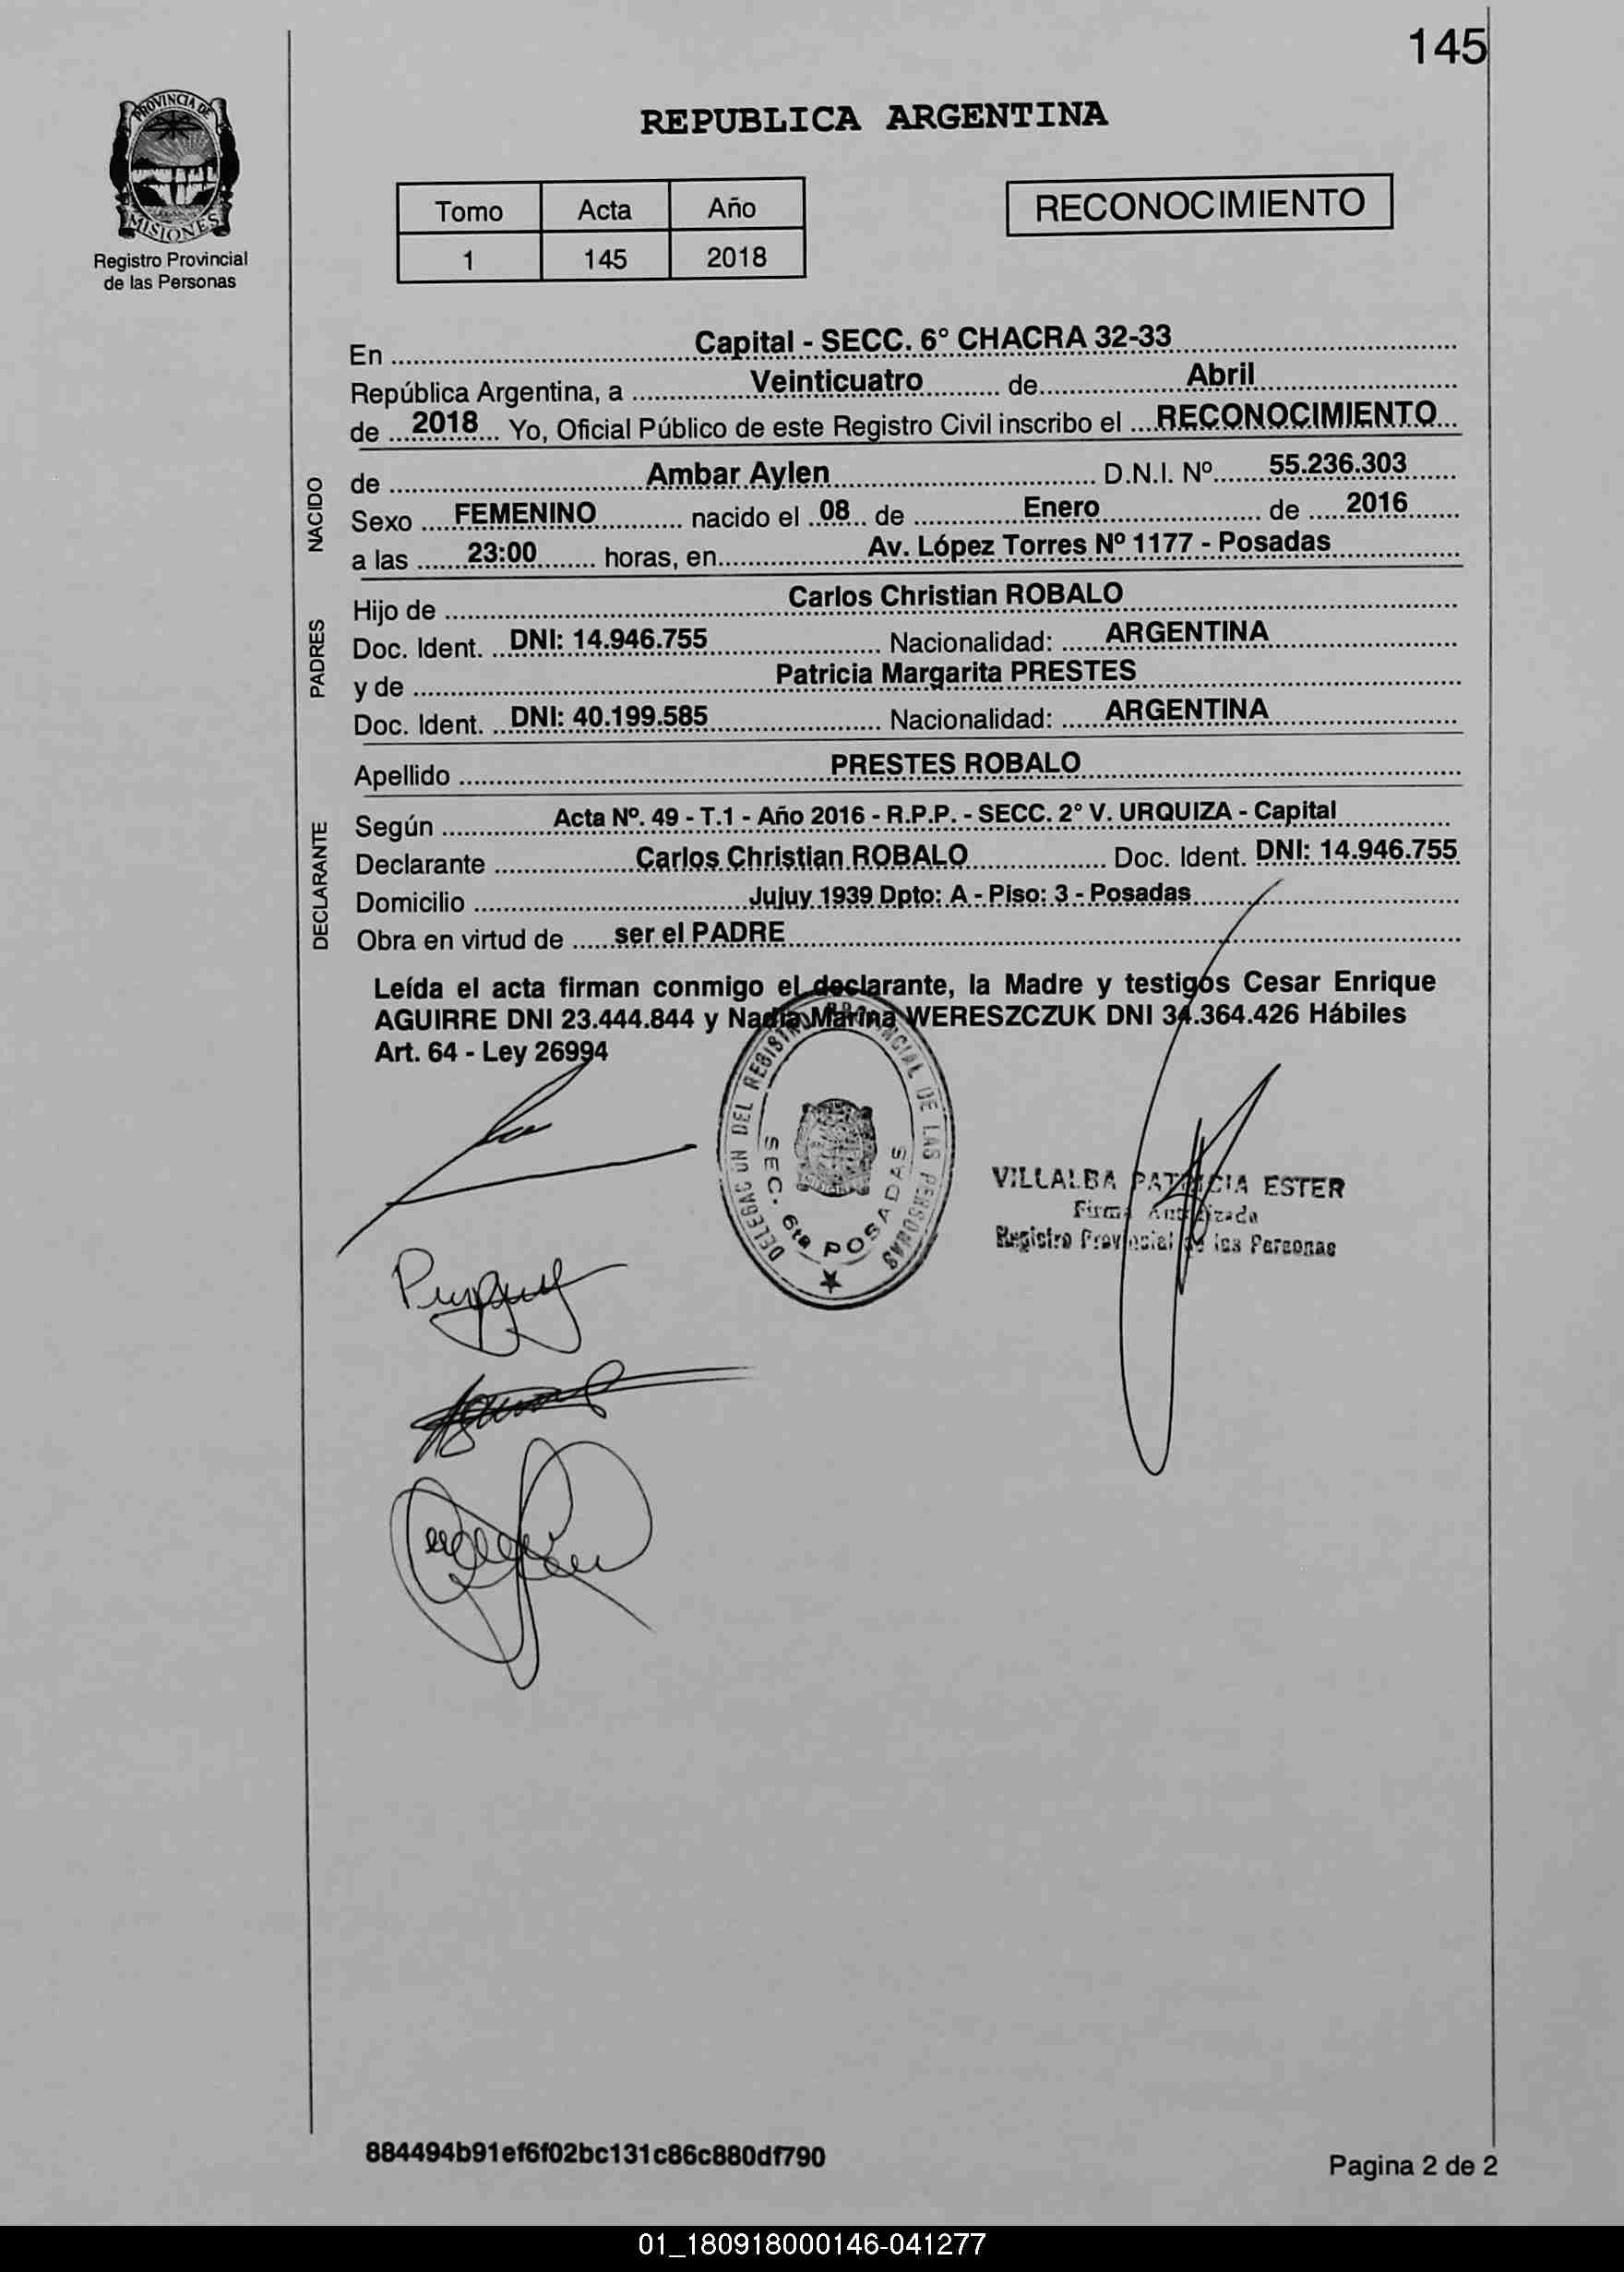 145
PROVINCIA DE
MISIONES
Registro Provincial
de las Personas
REPUBLICA ARGENTINA
Tomo Acta Año
1 145 2018
RECONOCIMIENTO
En Capital - SECC. 6° CHACRA 32-33
República Argentina, a Veinticuatro de Abril
de 2018 Yo, Oficial Público de este Registro Civil inscribo el RECONOCIMIENTO
NACIDO
de Ambar Aylen D.N.I. Nº 55.236.303
Sexo FEMENINO nacido el 08 de Enero de 2016
a las 23:00 horas, en Av. López Torres Nº 1177 - Posadas
PADRES
Hijo de Carlos Christian ROBALO
Doc. Ident. DNI: 14.946.755 Nacionalidad: ARGENTINA
y de Patricia Margarita PRESTES
Doc. Ident. DNI: 40.199.585 Nacionalidad: ARGENTINA
Apellido PRESTES ROBALO
DECLARANTE
Según Acta Nº. 49 - T.1 - Año 2016 - R.P.P. - SECC. 2° V. URQUIZA - Capital
Declarante Carlos Christian ROBALO Doc. Ident. DNI: 14.946.755
Domicilio Jujuy 1939 Dpto: A - Piso: 3 - Posadas
Obra en virtud de ser el PADRE
Leída el acta firman conmigo el declarante, la Madre y testigos Cesar Enrique
AGUIRRE DNI 23.444.844 y Nadia Marina WERESZCZUK DNI 34.364.426 Hábiles
Art. 64 - Ley 26994
DELEGACION DEL REGISTRO PROVINCIAL DE LAS PERSONAS
SEC. 6ta POSADAS
VILLALBA PATRICIA ESTER
Firma Autorizada
Registro Provincial de las Personas
884494b91ef6f02bc131c86c880df790
Pagina 2 de 2
01_180918000146-041277